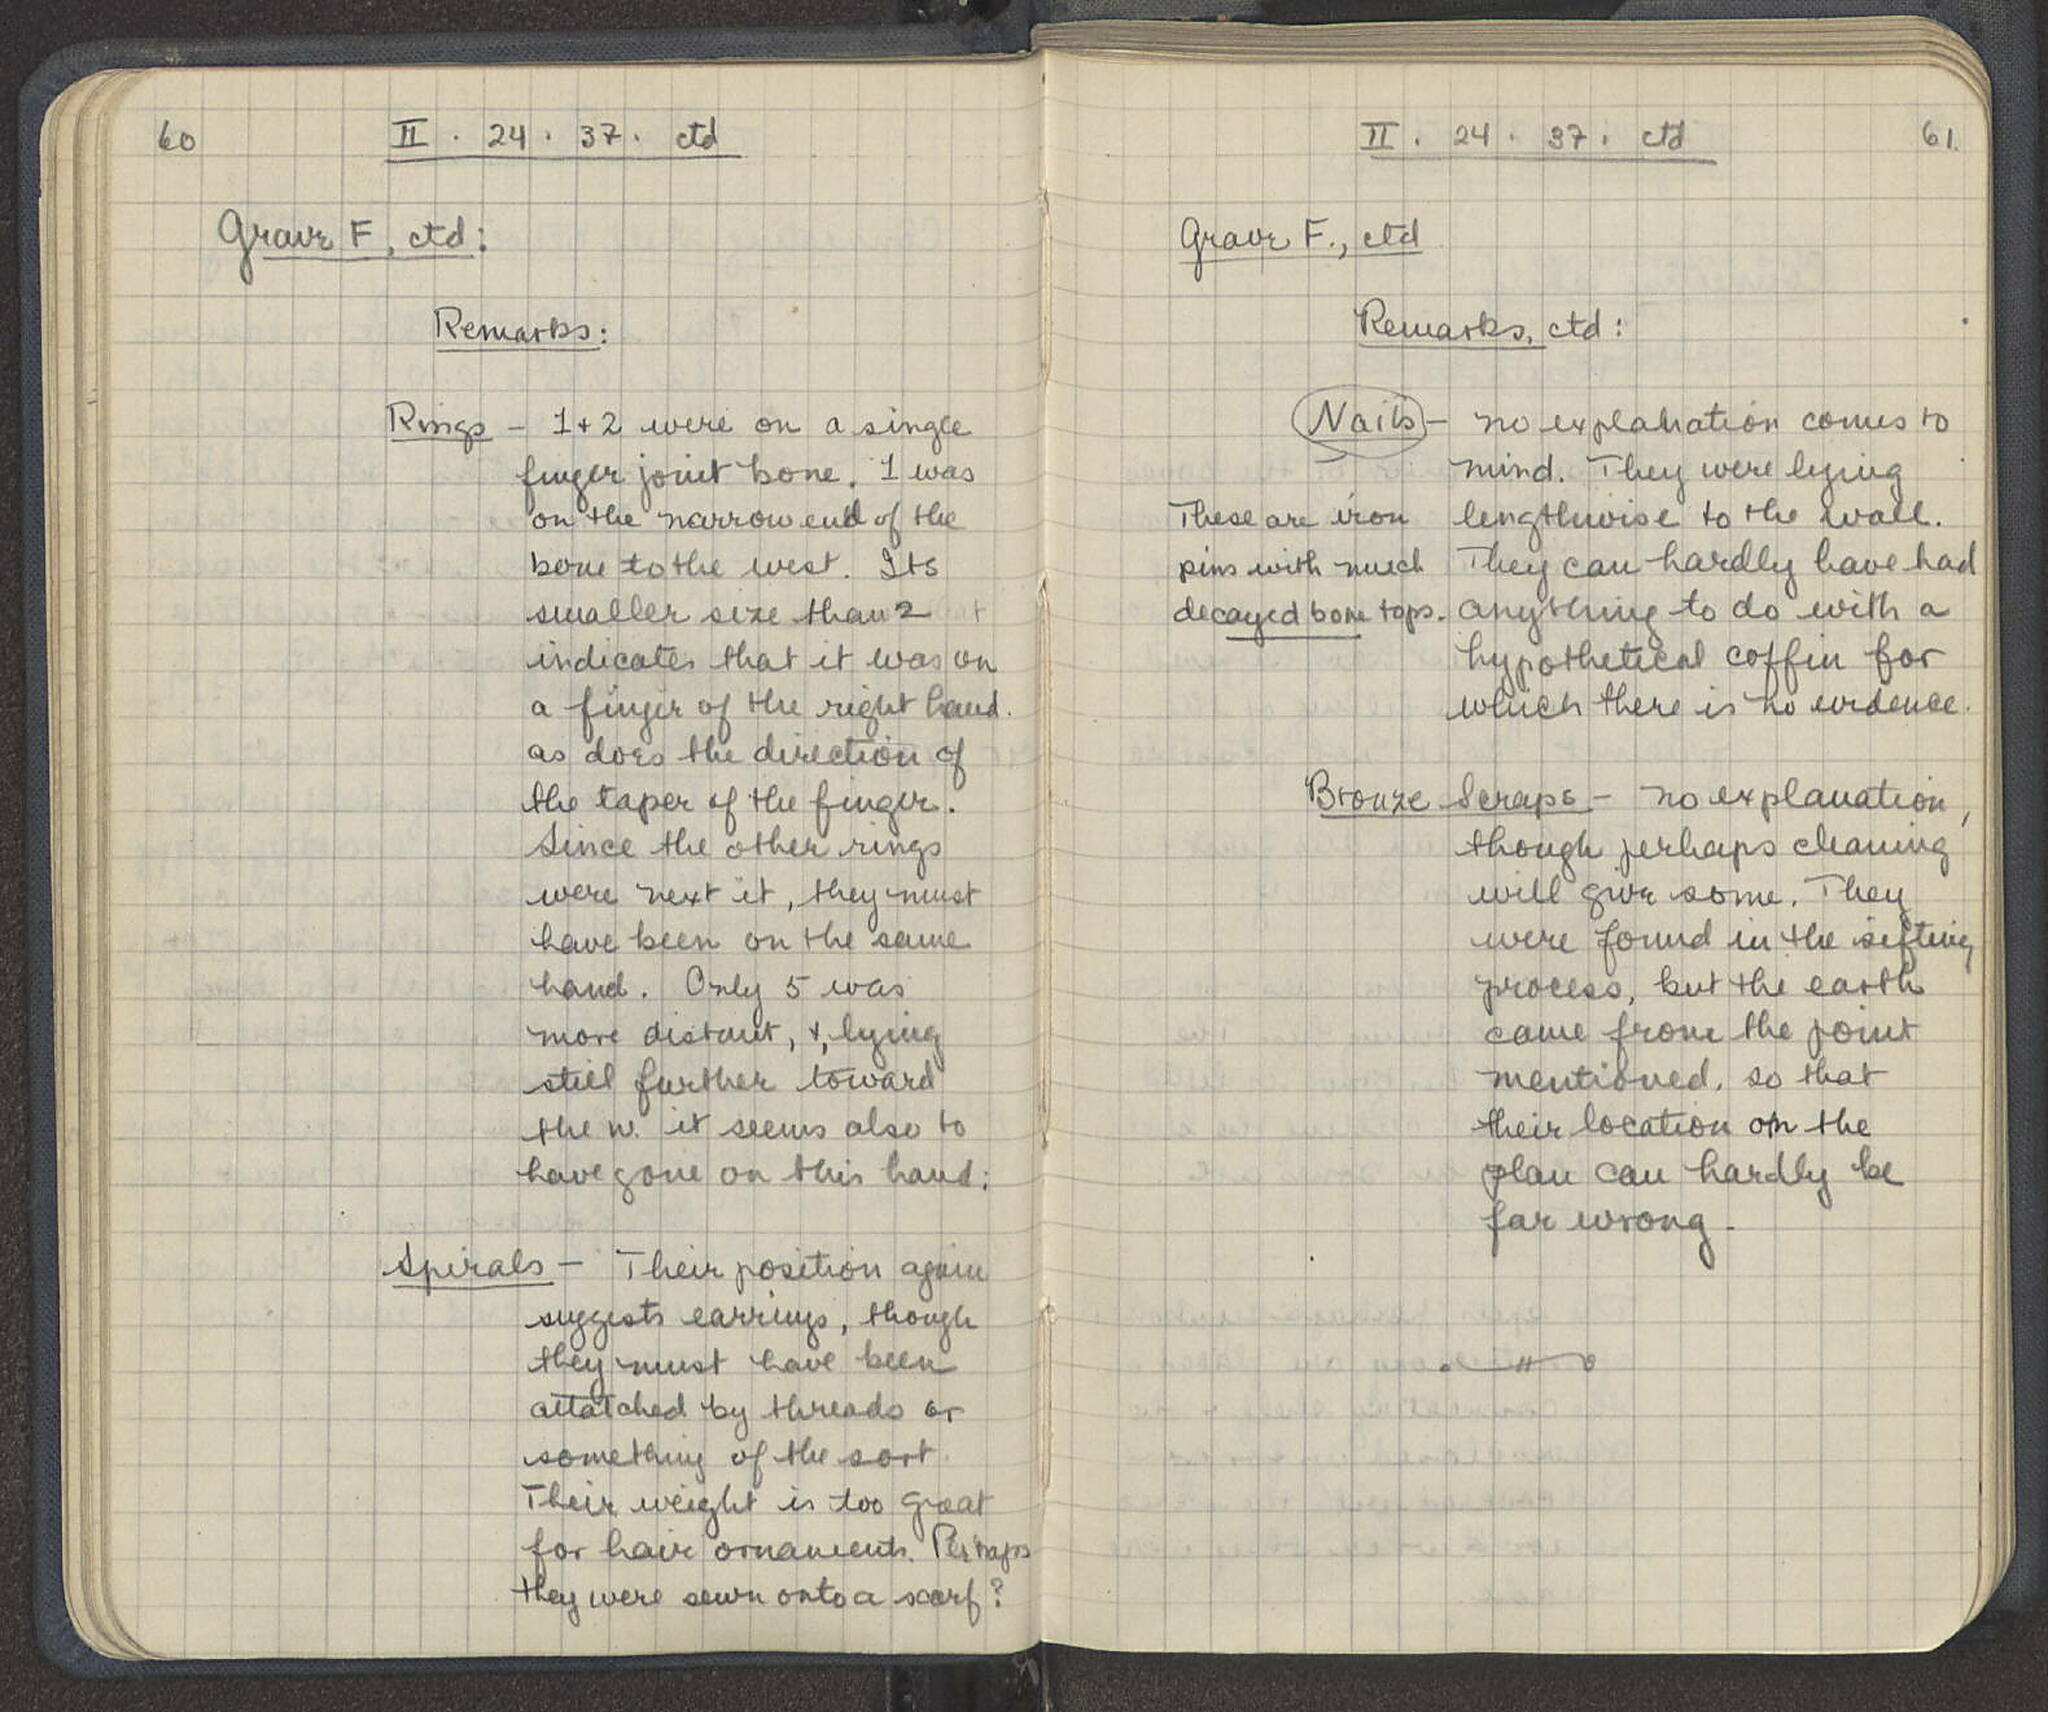 60
II . 24 . 37 . ctd
Grave F, ctd:
Remarks:
Rings – 1 + 2 were on a single
finger joint bone. 1 was
on the narrow end of the
bone to the west. Its
smaller size than 2
indicates that it was on
a finger of the right hand.
as does the direction of
the taper of the finger.
Since the other rings
were next it, they must
have been on the same
hand. Only 5 was
more distant, +, lying
still further toward
the w. it seems also to
have gone on this hand:
Spirals – Their position again
suggests earrings, though
they must have been
attatched by threads or
something of the sort.
Their weight is too great
for hair ornaments. Perhaps
they were sewn onto a scarf?
II . 24 . 37 . ctd
61.
Grave F., ctd
Remarks, ctd:
Nails – no explanation comes to
mind. They were lying
lengthwise to the wall.
They can hardly have had
anything to do with a
hypothetical coffin for
which there is no evidence.
These are iron
pins with much
decayed bone tops.
Bronze Scraps – no explanation,
though perhaps cleaning
will give some. They
were found in the sifting
process, but the earth
came from the point
mentioned, so that
their location on the
plan can hardly be
far wrong.